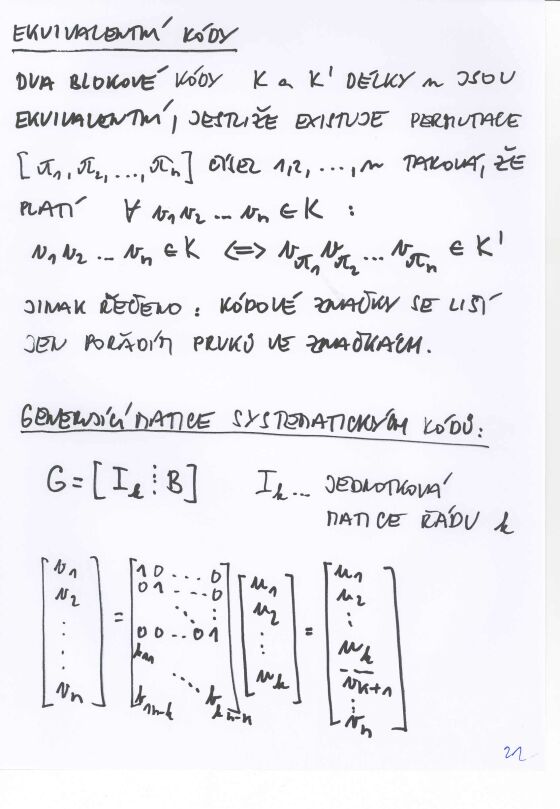 EKVIVALENTNÍ KÓDY
DVA BLOKOVÉ KÓDY K a K' DÉLKY n JSOU
EKVIVALENTNÍ, JESTLIŽE EXISTUJE PERMUTACE
[π₁, π₂, ..., πₙ] ČÍSEL 1,2, ..., n TAKOVÁ, ŽE
PLATÍ ∀ v₁v₂ ... vₙ ∈ K :
v₁v₂ ... vₙ ∈ K <=> v_π₁ v_π₂ ... v_πₙ ∈ K'
JINAK ŘEČENO : KÓDOVÉ ZNAČKY SE LIŠÍ
JEN POŘADÍM PRVKŮ VE ZNAČKÁCH.
GENERUJÍCÍ MATICE SYSTEMATICKÝCH KÓDŮ:
G = [I_k ⋮ B] I_k ... JEDNOTKOVÁ
MATICE ŘÁDU k
[v₁ v₂ ⋮ vₙ] = [1 0 ... 0
0 1 ... 0
⋮
0 0 ... 0 1
⋱
] [u₁ u₂ ⋮ u_k] = [u₁ u₂ ⋮ u_k v_k+1 ⋮ vₙ]
22